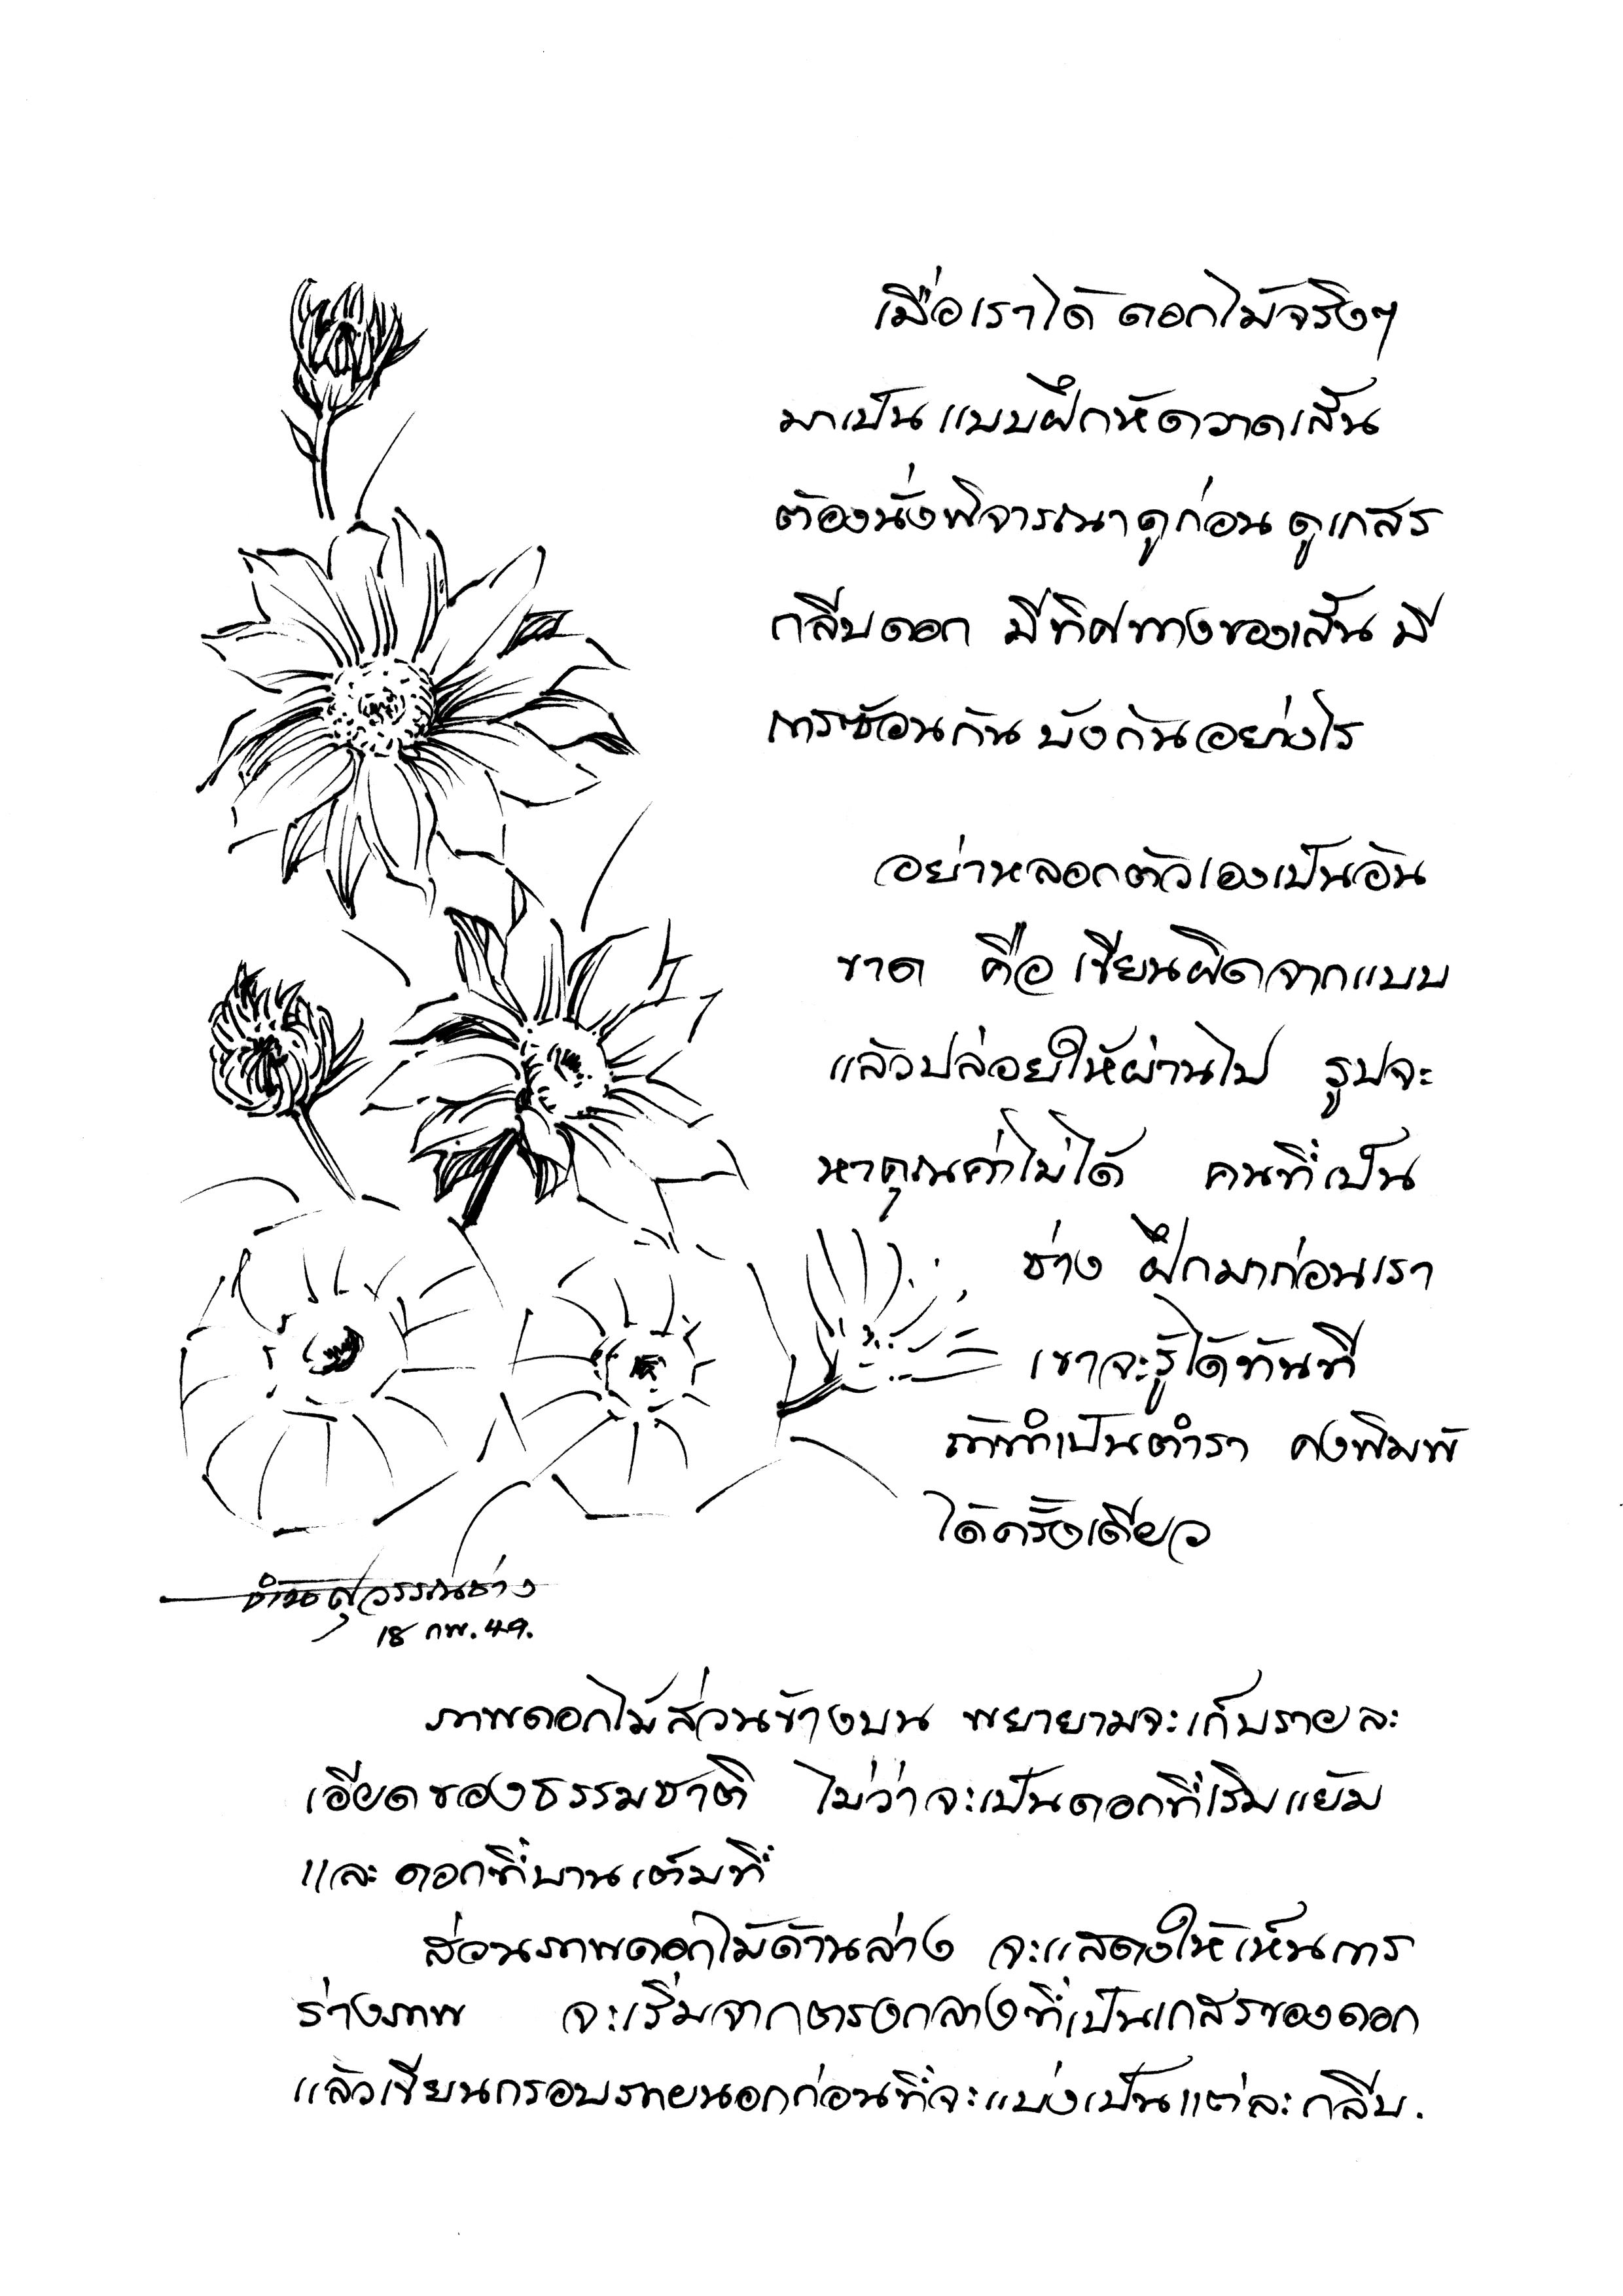 เมื่อเราได้ ดอกไม้จริงๆ
มาเป็น แบบฝึกหัดวาดเส้น
ต้องนั่งพิจารณาดูก่อน ดูเกสร
กลีบดอก มีทิศทางของเส้น มี
การซ้อนกัน บังกันอย่างไร
อย่าหลอกตัวเองเป็นอัน
ขาด คือ เขียนผิดจากแบบ
แล้วปล่อยให้ผ่านไป รูปจะ
หาคุณค่าไม่ได้ คนที่เป็น
ช่าง ฝึกมาก่อนเรา
เขาจะรู้ได้ทันที
ถ้าทำเป็นตำรา คงพิมพ์
ได้ครั้งเดียว
สุวรรณช่าง
18 กพ. 49.
ภาพดอกไม้ส่วนข้างบน พยายามจะเก็บรายละ
เอียดของธรรมชาติ ไม่ว่าจะเป็นดอกที่เริ่มแย้ม
และ ดอกที่บานเต็มที่
ส่วนภาพดอกไม้ด้านล่าง จะแสดงให้เห็นการ
ร่างภาพ จะเริ่มจากตรงกลางที่เป็นเกสรของดอก
แล้วเขียนกรอบรายนอกก่อนที่จะแบ่งเป็นแต่ละกลีบ.